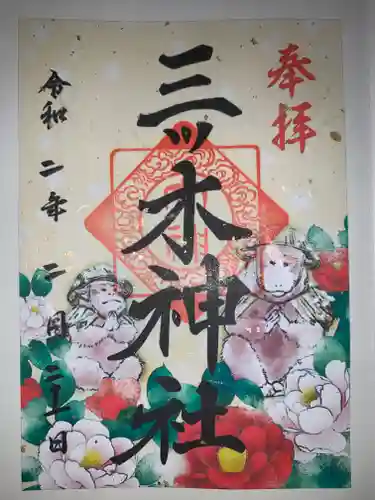 奉拝
三ツ木神社
令和二年二月二十一日